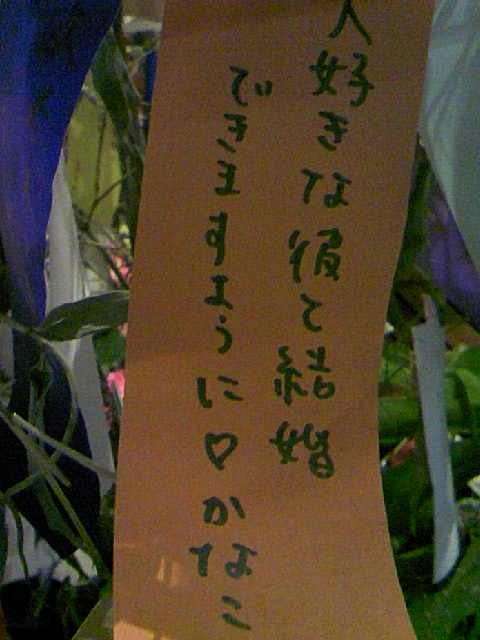 大好きな彼と結婚
できますように♡かなこ